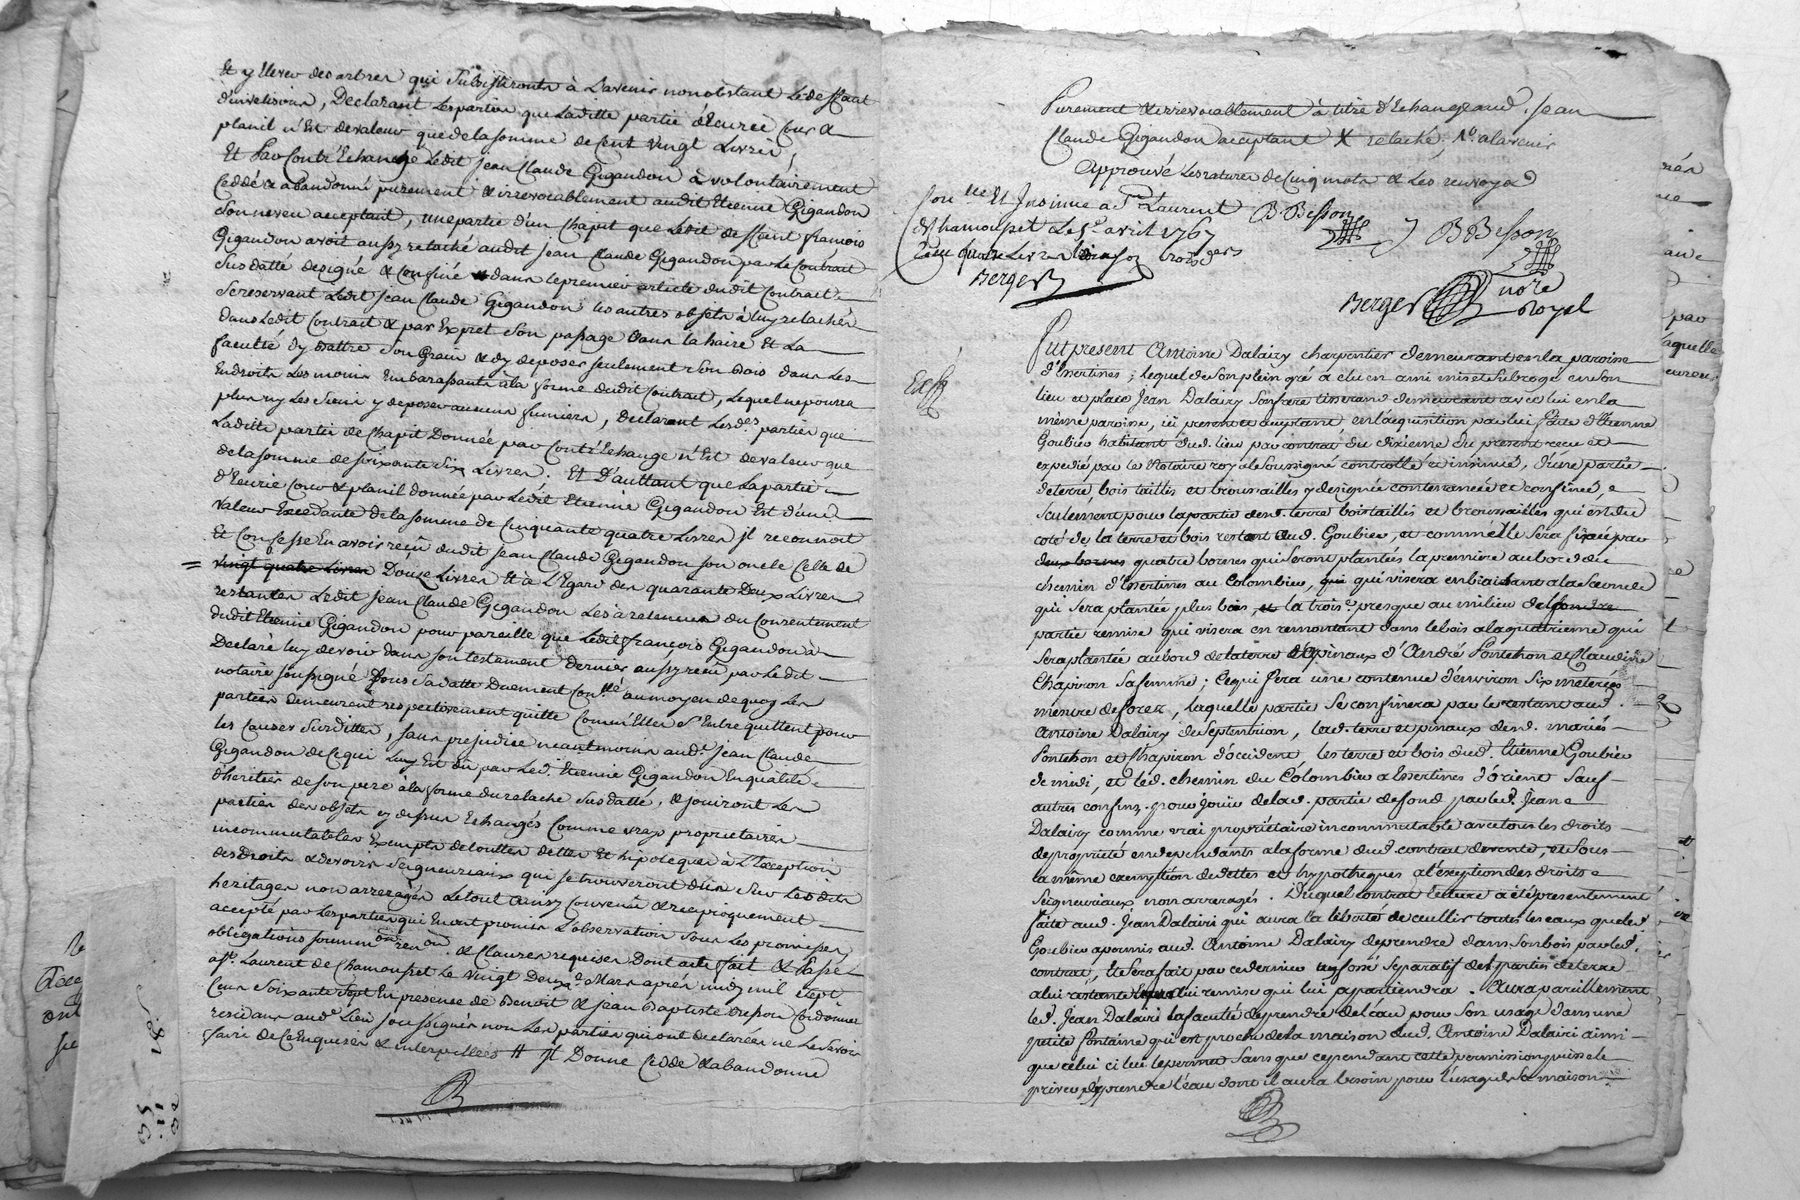 Et y Elever des arbres qui subsisteronts à L'avenir nonobstant Le deffaut
d'invetision, Declarant Les parties que Laditte partie d'Ecurie Cour &
planil n'Est de valeur que de la somme de Cent vingt Livres,
Et Par Contr'Echange Ledit Jean Claude Gigandon à volontairement
Ceddé & abandonné purement & irrevocablement audit Etienne Gigandon
son neveu acceptant, une partie d'un Chapit que Ledit deffunt françois
Gigandon avoit aussy relaché audit Jean Claude Gigandon par Le Contrait
susdatté designé & Confiné dans le premier article dudit Contract
se reservant Ledit Jean Claude Gigandon les autres objets à luy relachés
dans Ledit Contrait & par Expret son passage dans la haire Et La
faculté d'y Battre son Grain & d'y deposer seulement son Bois dans Les
Endroits Les moins Embarassants à la forme dudit Contrait, Lequel ne pourra
plus ny Les siens y deposer aucuns fumiers, Declarant Lesd.es parties que
Laditte partie de Chapit Donnée par Contr'Echange n'Est de valeur que
de la somme de soixante six Livres, Et D'auttant que La partie
d'Ecurie Cour & planil donnée par Ledit Etienne Gigandon Est d'une
valeur Excedante de la somme de Cinquante quatre Livres Il reconnoit
Et Confesse En avoir reçu dudit Jean Claude Gigandon son oncle Celle de
= vingt quatre Livres Douze Livres Et à L'Egard des quarante Deux Livres
restantes Ledit Jean Claude Gigandon Les à retenues du Consentement
dudit Etienne Gigandon pour pareille que Ledit françois Gigandon à
Declaré luy devoir dans son testament dernier aussy reçu par Ledit
notaire soussigné sous sa datte Duement Con.llé au moyen de quoy Les
parties Demeurent respectivement quitte Comm'Elles S'Entrequittent pour
les Causes Susdittes, sans prejudice neantmoins aud.t Jean Claude
Gigandon de Ce qui Luy Est dû par Led.t Etienne Gigandon En qualité
d'heritier de son pere à la forme du relaché Susdatté, & jouiront Les
parties des objets cy dessus Echangés Comme vrays proprietaires
incommutables Exempts de touttes dettes Et hipoteques à L'Exception
des Droits & devoirs Seigneuriaux qui se trouveront dûs sur Lesdits
heritages non arreragés Le tout ainsy Convenu & reciproquement
accepté par Les parties qui En ont promis L'observation sous Les promesses
obligations soumm.on ren.on & Clauses requises Dont acte fait & Passé
a S.t Laurent de Chamousset Le vingt Deux.e Mars après midy mil sept
Cent Soixante Sept En presence de Benoit & Jean Baptiste Besson Cordonnier
residans aud.t Lieu soussignés non Les parties qui ont declarées ne Le savoir
faire de Ce Enquises & interpellées # Il Donne Cedde & abandonne
Purement & irrevocablement à titre d'Echange aud.t Jean
Claude Gigandon acceptant X relaché, N.o a lavenir
Approuvé Les ratures de Cinq mots & Les renvoyes
Con.llé Et Insinué a S.t Laurent
de Chamousset Le 5.e avril 1767
Berger
BBesson
BBesson
Berger
no.re
Royal
Fut present Antoine Dalairy charpentier demeurant en la paroisse
d'Essertines; lequel de son plein gré a elu en ami mis et subrogé en son
lieu et place Jean Dalairy son frere tisserand demeurant avec lui en la
même paroisse, ici present et acceptant en l'acquisition par lui faite d'Etienne
Goubier habitant dud. lieu par contrat du dixieme du present reçu et
expedié par le Notaire royal soussigné controllé et insinué, d'une partie
de terre, bois taillis et broussailles y designée contenancée et confinée,
seulement pour la partie desd. terre bois taillis et broussailles qui est du
coté de la terre et bois restant dud. Goubier, et comm'elle sera fixée par
deux bornes quatre bornes qui seront plantées la premiere au bord du
chemin d'Essertines au Colombier, qui visera en biaisant a la seconde
qui sera plantée plus bas, la trois.e presque au milieu de
partie remise qui visera en remontant dans le bois a la quatrieme qui
sera plantée au bord de la terre et pinaux d'André Pontehon et Claudine
Chapiron sa femme; Ce qui sera une contenue d'environ six meterées
mesure de forez, laquelle partie se confinera par le restant aud.
Antoine Dalairy de Septentrion, la d. terre et pinaux desd. mariés
Pontehon et Chapiron d'occident les terre et bois dud. Etienne Goubier
de midi, et led. chemin du Colombier a Essertines d'orient Sauf
autres confins. pour jouir de la d. partie de fond par led. Jean
Dalairy comme vrai propriétaire incommutable avec tous les droits
de propriété en dependants a la forme dud. contrat de vente, et sous
la même exemption de dettes et hypotheques a l'exeption des droits
Seigneuriaux non arreragés. Duquel contrat lecture a été presentement
faite aud. Jean Dalairi qui aura la liberté de cueillir toutes les eaux que led.
Goubier a permis aud. Antoine Dalairy de prendre dans son bois par led.
contrat, Et sera fait par ce dernier un fossé separatif des parties de terre
a lui restante lui remise qui lui apartiendra. Aura pareillement
led. Jean Dalairi la faculté de prendre de l'eau pour son usage dans une
petite fontaine qui est proche de la maison dud. Antoine Dalairi ainsi
que celui ci lui le permet sans que cependant cette permission puisse le
priver de prendre l'eau dont il aura besoin pour l'usage de sa maison